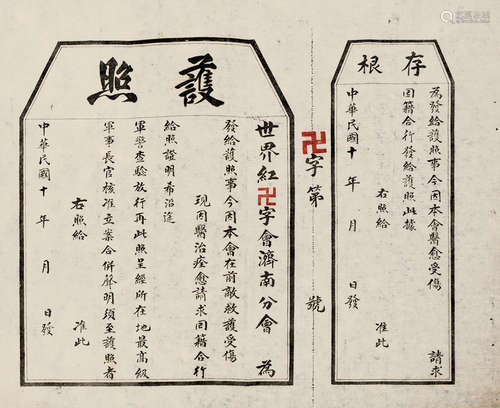 存根
為發給護照事今因本會醫愈受傷　請求
回籍合行發給護照此據
右照給　准此
中華民國十　年　月　日發
卍字第　號
護照
世界紅卍字會濟南分會　為
發給護照事今因本會在前敵救護受傷
現因醫治痊愈請求回籍合行
給照證明希沿途
軍警查驗放行再此照呈經所在地最高級
軍事長官核准立案合併聲明須至護照者
右照給　准此
中華民國十　年　月　日發